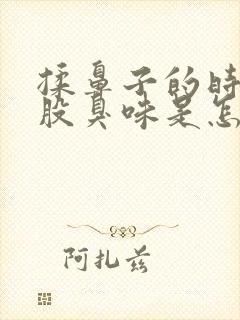 揉鼻子的时
股臭味是怎
阿扎兹